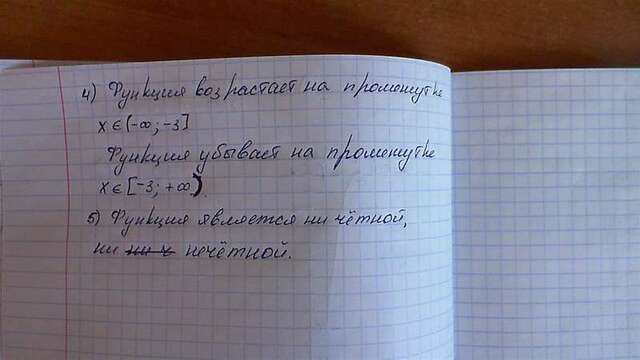 4) Функция возрастает на промежутке
x∈(-∞; -3]
Функция убывает на промежутке
x∈[-3; +∞)
5) Функция является ни чётной,
ни ни ч нечётной.